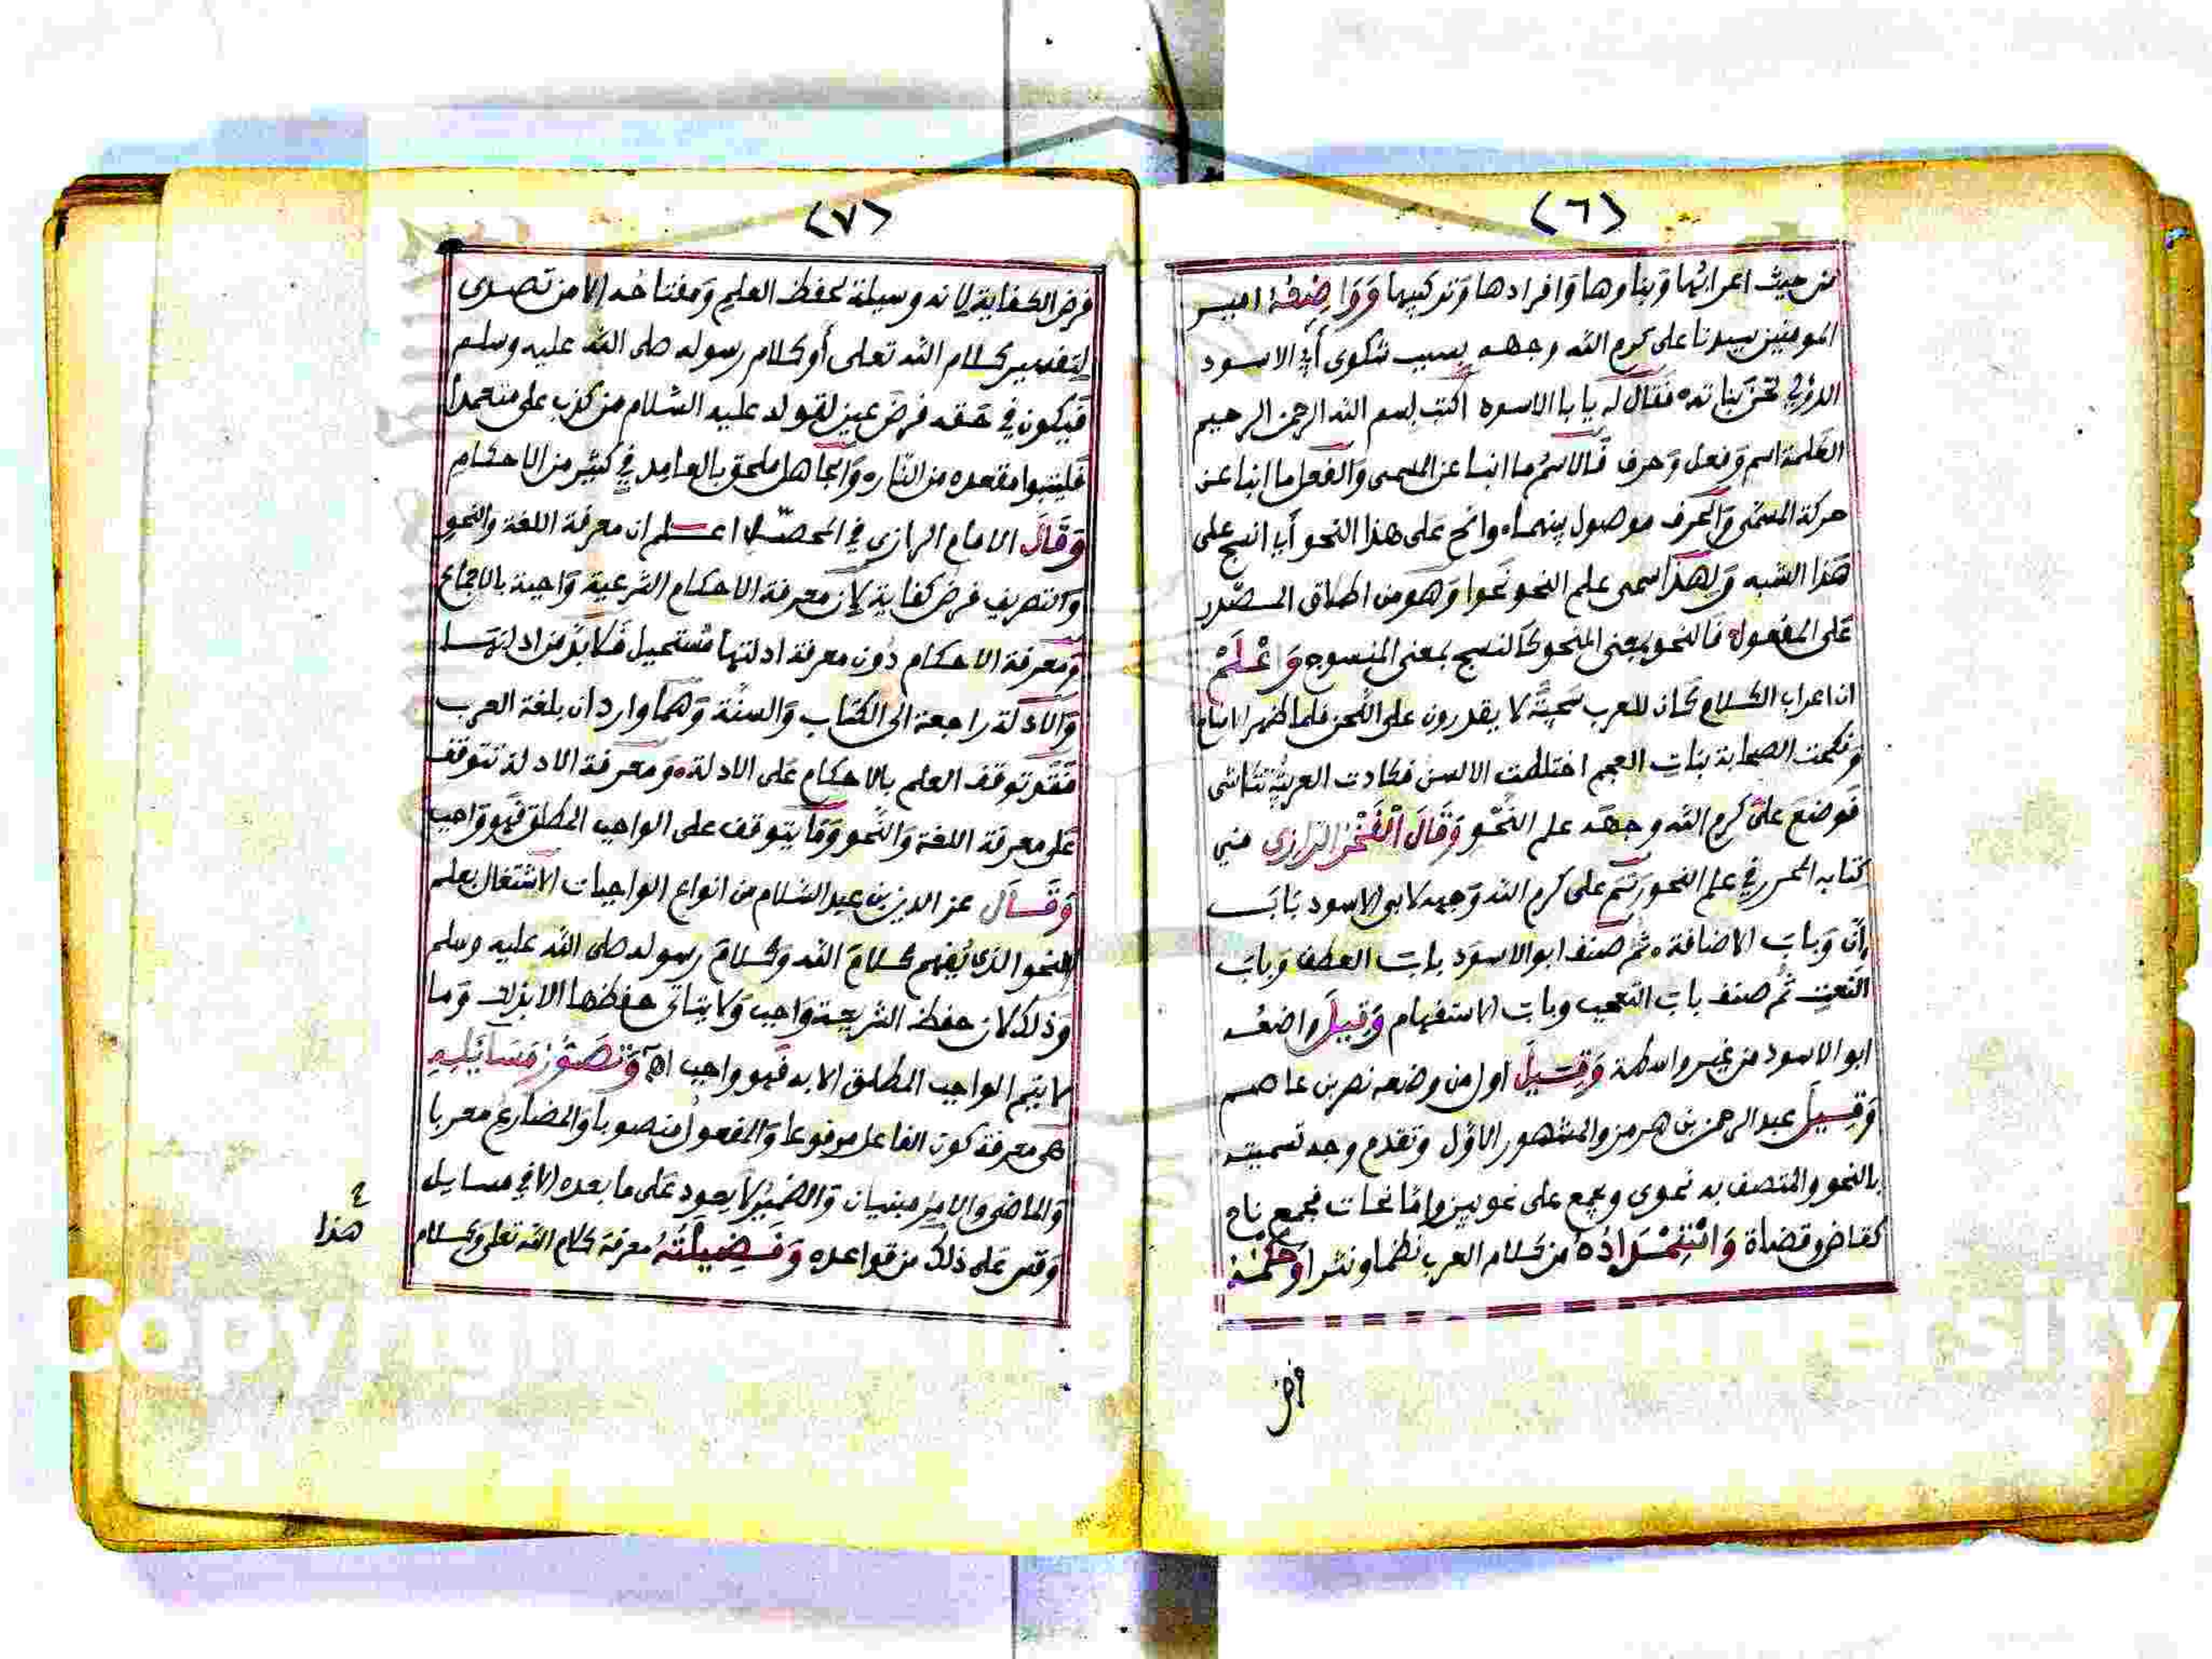 (٦)
من حيث اعرابها وبناوها وافرادها وتركيبها وواضعه امير
المومنين سيدنا على كرم الله وجهه بسبب شكوى أبي الاسود
الدؤلي لحن بناته فقال له يا با الاسود اكتب بسم الله الرحمن الرحيم
الكلمة اسم وفعل وحرف فالاسم ما انبا عن المسمى والفعل ما انبا عن
حركة المسمى والحرف موصول بينهما وانح على هذا النحو أي انسج على
هذا الشبه ولهذا سمى علم النحو نحوا وهو من اطلاق المصدر
على المفعول فالنحو بمعنى المنحو كالنسج بمعنى المنسوج واعلم
ان اعراب الكلام كان للعرب سجية لا يقدرون على اللحن فلما ظهر الاسلام
ونكحت الصحابة بنات العجم اختلطت الالسن فكادت العربية تتلاشى
فوضع على كرم الله وجهه علم النحو وقال الفخر الرازي في
كتابه المحرر في علم النحو رسم على كرم الله وجهه لابى الاسود باب
إن وباب الاضافة ثم صنف ابو الاسود باب العطف وباب
النعت ثم صنف باب التعجب وباب الاستفهام وقيل واضعه
ابو الاسود من غير واسطة وقيل اول من وضعه نصر بن عاصم
وقيل عبد الرحمن بن هرمز والمشهور الاول وتقدم وجه تسميته
بالنحو والمتصف به نحوى ويجمع على نحويين واما نحات فجمع ناح
كقاض وقضاة واستمداده من كلام العرب نظما ونثرا وحكمه
فرض
(٧)
فرض الكفاية لانه وسيلة لحفظ العلم ومفتاحه الا من تصدى
لتفسير كلام الله تعلى أو كلام رسوله صلى الله عليه وسلم
فيكون في حقه فرض عين لقوله عليه السلام من كذب على متعمدا
فليتبوا مقعده من النار والجاهل ملحق بالعامد في كثير من الاحكام
وقال الامام الرازي في المحصل اعلم ان معرفة اللغة والنحو
والتصريف فرض كفاية لان معرفة الاحكام الشرعية واجبة بالاجماع
ومعرفة الاحكام دون معرفة ادلتها مستحيل فلا بد من ادلتها
والادلة راجعة الى الكتاب والسنة وهما واردان بلغة العرب
فقد توقف العلم بالاحكام على الادلة ومعرفة الادلة تتوقف
على معرفة اللغة والنحو وما يتوقف على الواجب المطلق فهو واجب
وقال عز الدين بن عبد السلام من انواع الواجبات الاشتغال بعلم
النحو الذى يفهم كلام الله وكلام رسوله صلى الله عليه وسلم
وذلك لان حفظ الشريعة واجب ولا يتاتى حفظها الا بذلك وما
لا يتم الواجب المطلق الا به فهو واجب اه وتصور مسائله
هى معرفة كون الفاعل مرفوعا والمفعول منصوبا والمضارع معربا
والماضى والامر مبنيان والضمير لا يعود على ما بعده الا في مسايل
وقس على ذلك من قواعده وفضيلته معرفة كلام الله تعلى وكلام
هذا
Copyright © King Saud University